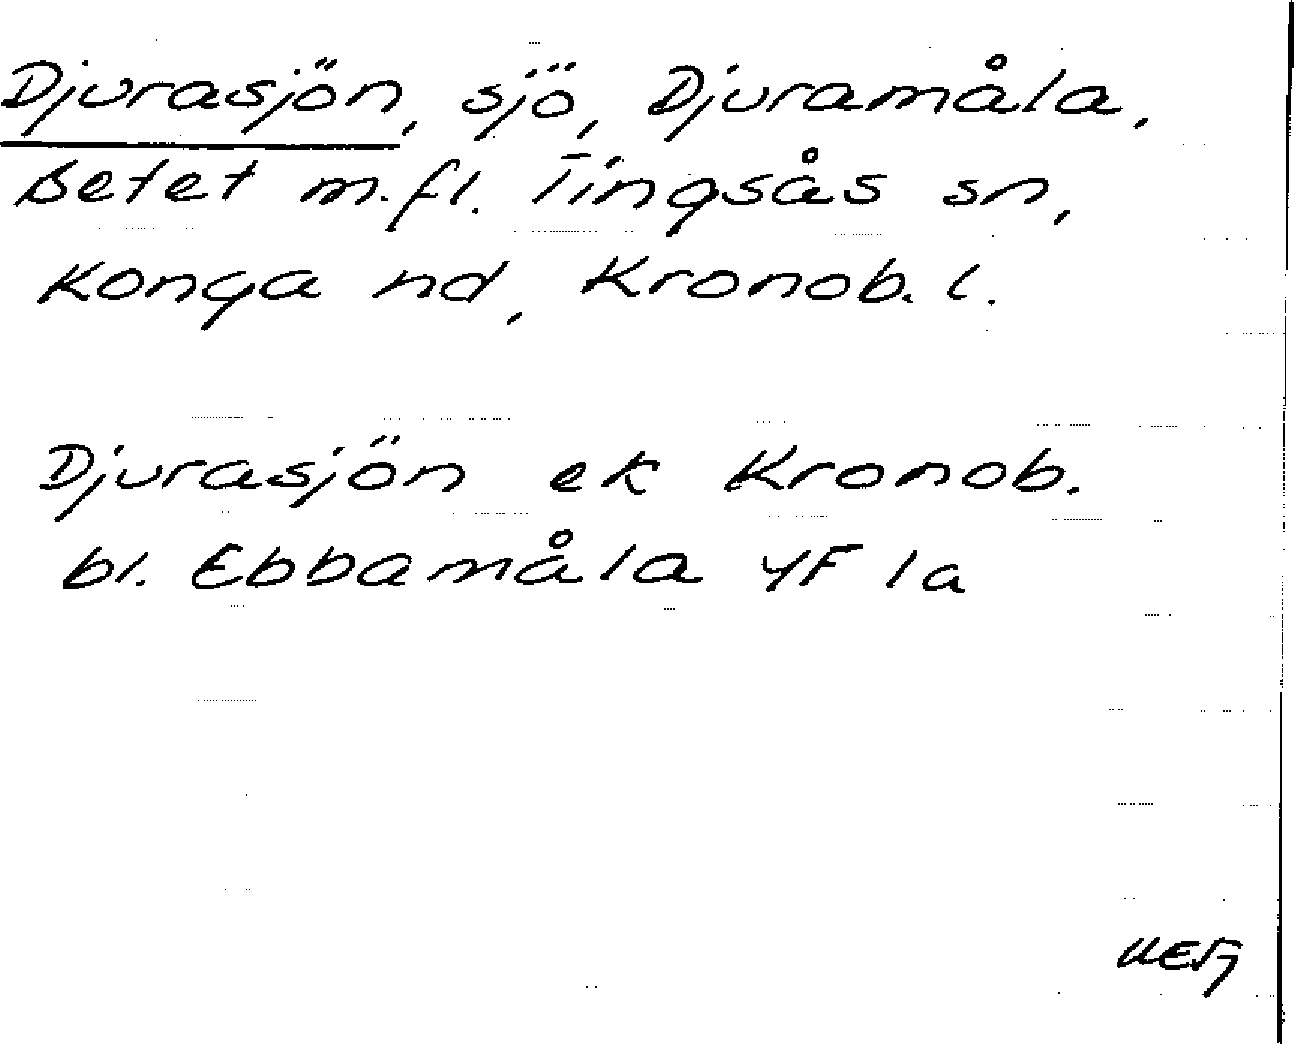 Djurasjön, sjö, Djuramåla,
Betet m.fl. Tingsås sn,
Konga hd, Kronob. l.
Djurasjön ek Kronob.
bl. Ebbamåla 4F 1a